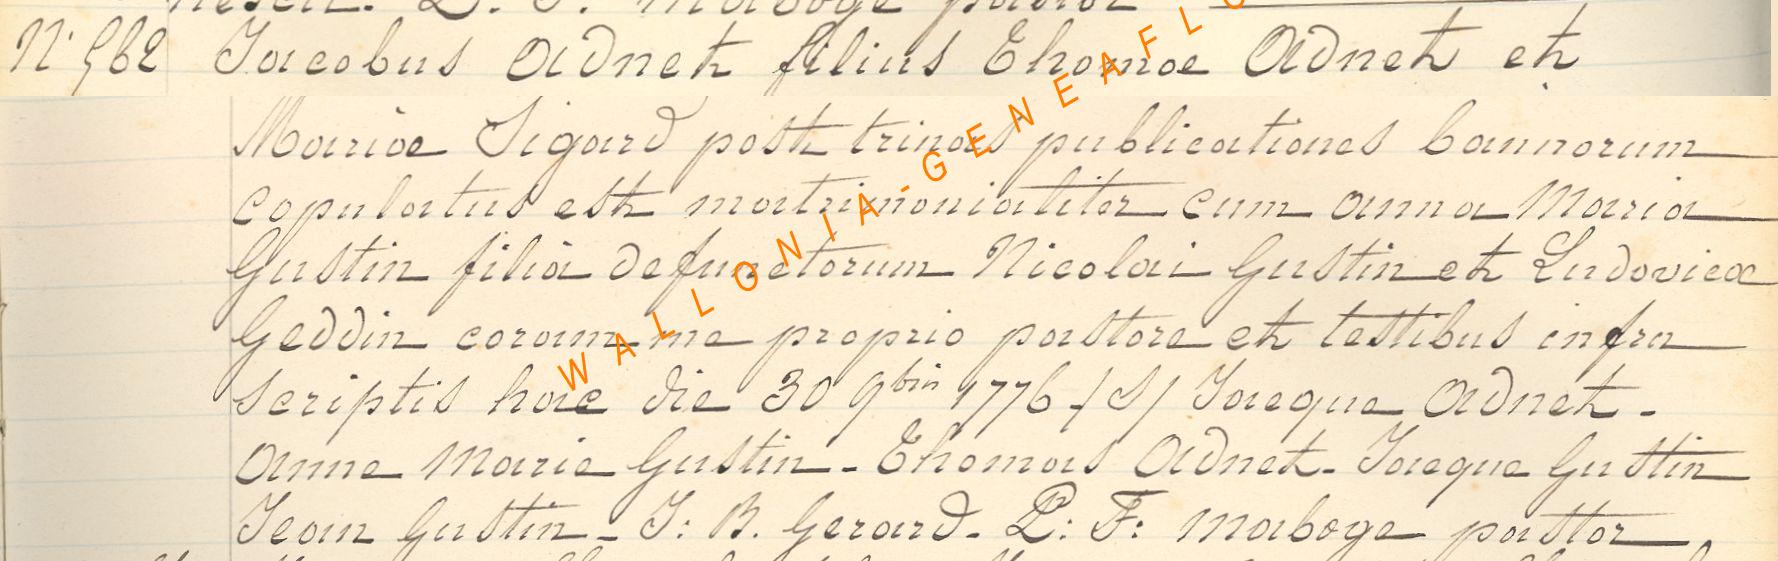 L. F. Maboge pastor
N° 562 Jacobus Adnet filius Thomae Adnet et
Mariae Sigard post trinas publicationes bannorum
copulatus est matrimonialiter cum Anna Maria
Gustin filia defunctorum Nicolai Gustin et Ludovicae
Geddin coram me proprio pastore et testibus infra
scriptis hac die 30 9bris 1776 /S/ Jacque Adnet -
Anne Marie Gustin - Thomas Adnet - Jacque Gustin
Jean Gustin - J: B. Gerard - L: F: Maboge pastor
WALLONIA-GENEAFLO